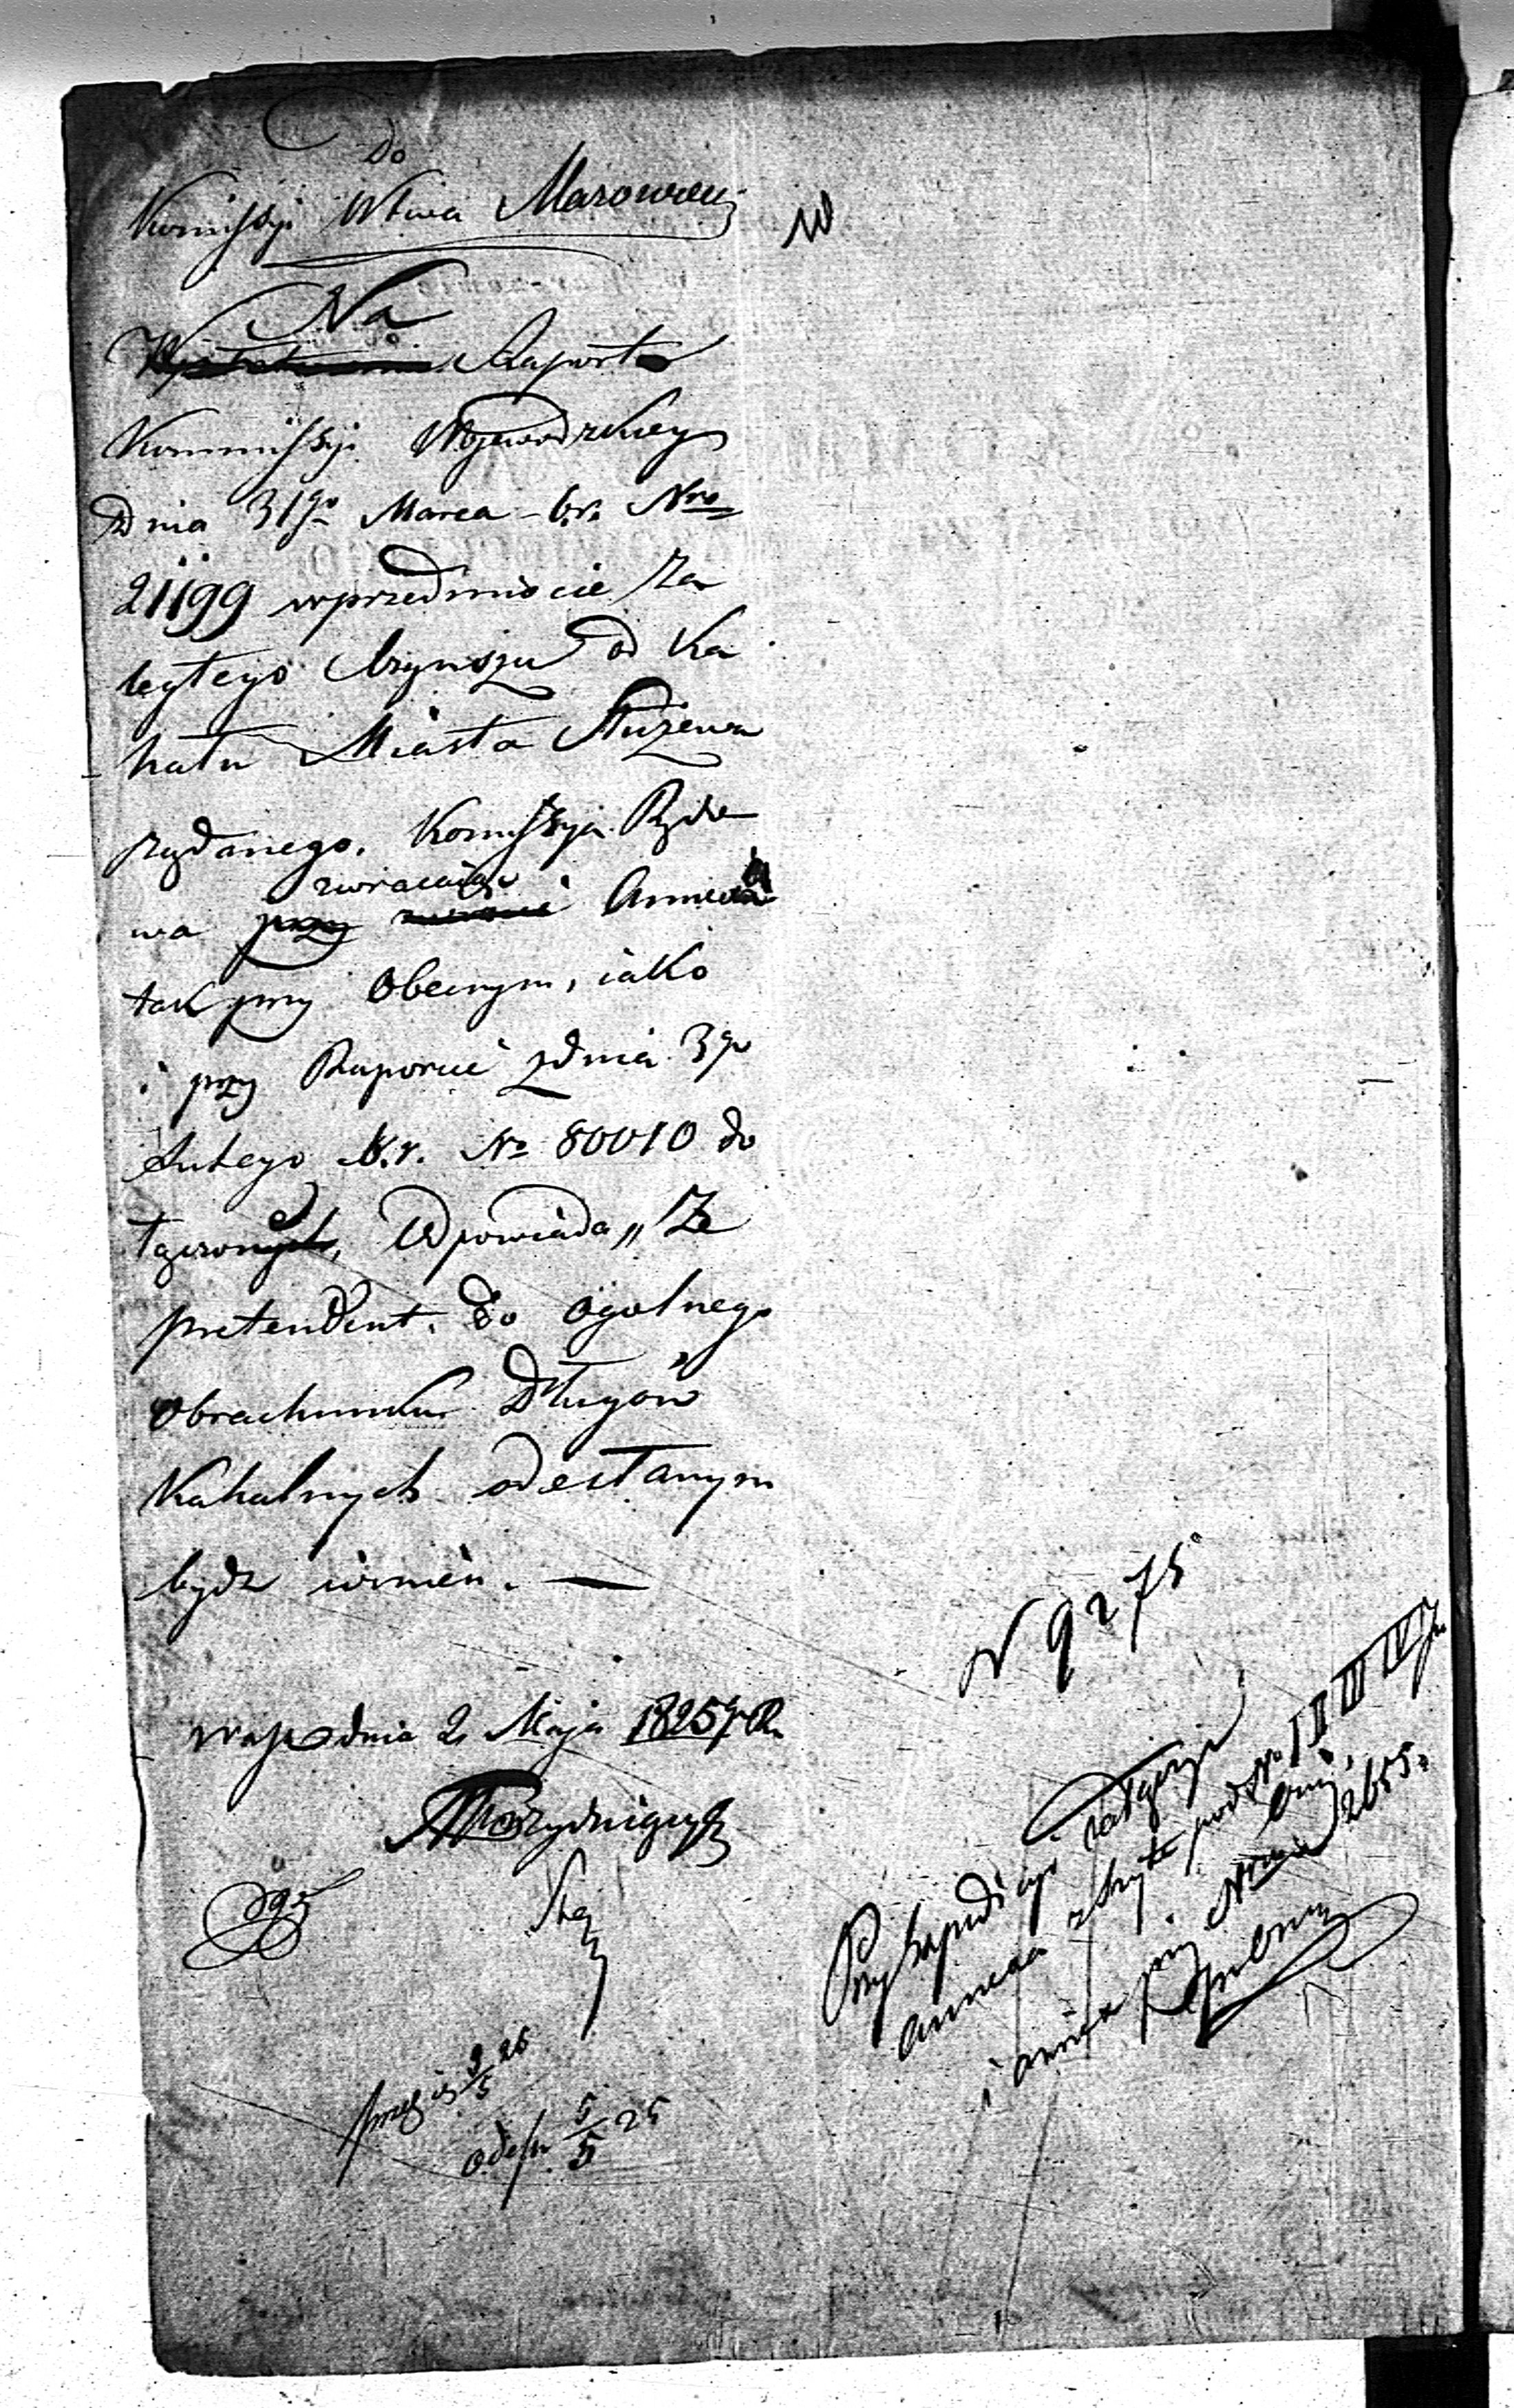 Do
Kommissyi Wtwa Mazowiec
Na
Raport
Kommissyi Wojewodzkiey
z dnia 31go Marca b.r. Nro
21199 w przedmiocie za
ległego Czynszu od Ka
hału Miasta Służewa
żądanego. Kommissya Rządo
wa przy zwracaiąc Annexa
tak przy Obecnym, iako
i przy Raporcie z dnia 3go
Lutego b.r. No 80010 do
łączone, Odpowiada „Ze
pretendent. do ogolnego
Obrachunku Długow
Kahalnych odesłanym
bydz winien. —
w Warsz dnia 2 Maja 1825go R.
N 9275
Przy Expedicyi załączyć
annexa zszyte pod No I II III IV
i annexa przy Nrze 2655.
przepis 3/5 25
odesz 5/5 25